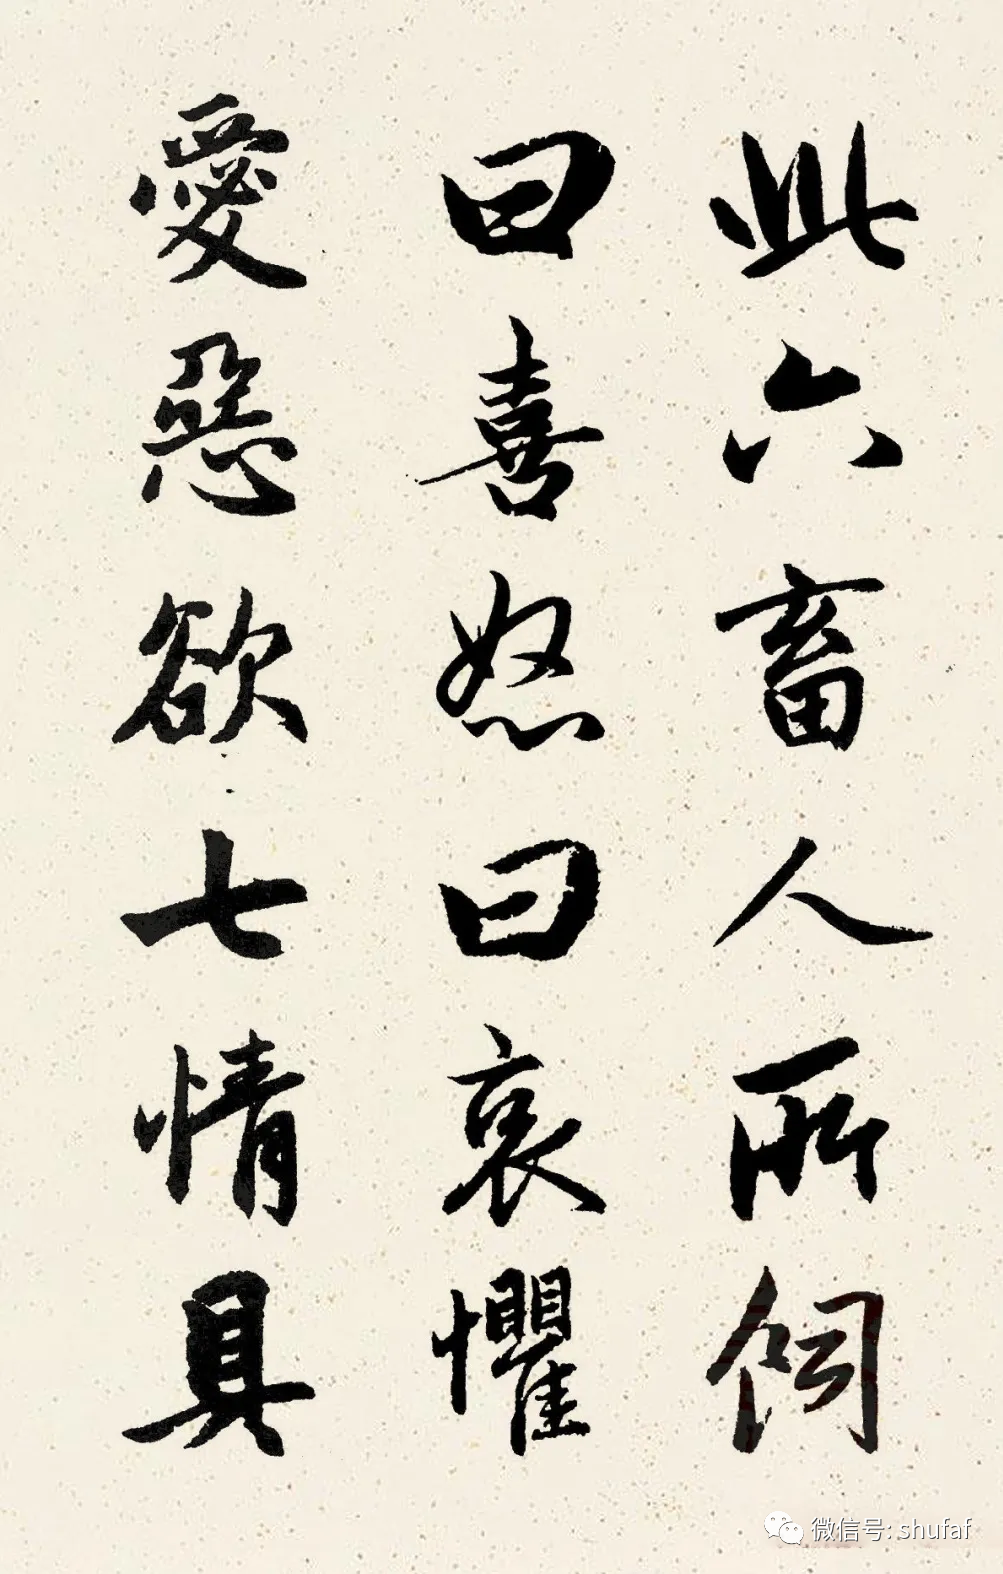 此六畜人所飼
曰喜怒曰哀懼
愛惡欲七情具
微信号: shufaf